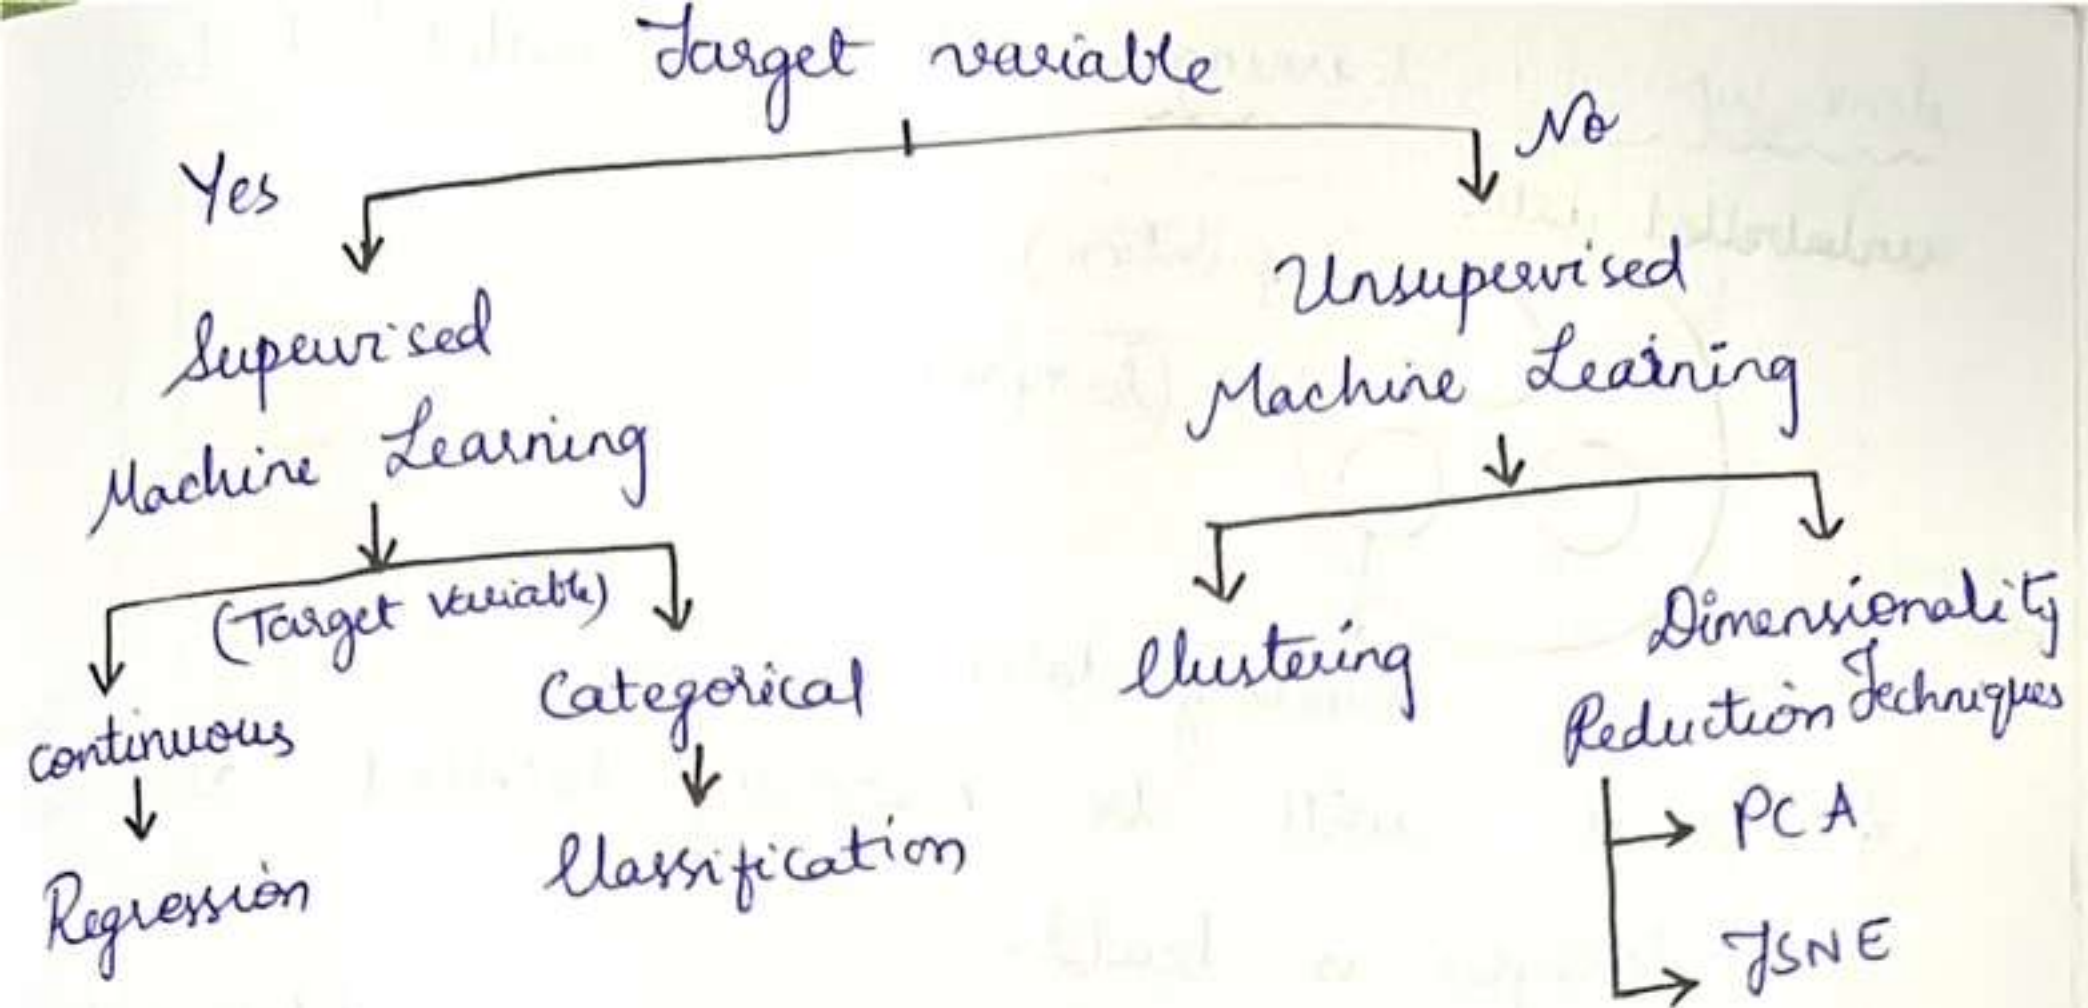 Target variable
Yes
No
Supervised
Machine Learning
Unsupervised
Machine Learning
(Target variable)
continuous
Categorical
Regression
Classification
Clustering
Dimensionality
Reduction Techniques
PCA
TSNE